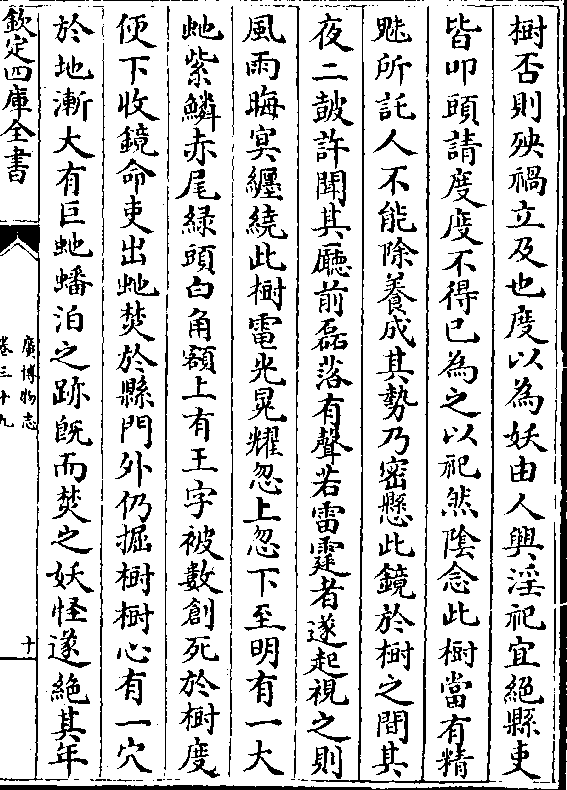 樹否則殃禍立及也度以為妖由人興淫祀宜絕縣吏
皆叩頭請度度不得已為之以祀然陰念此樹當有精
魅所託人不能除養成其勢乃密懸此鏡於樹之間其
夜二鼓許聞其廳前磊落有聲若雷霆者遂起視之則
風雨晦冥纏繞此樹電光晃耀忽上忽下至明有一大
虵紫鱗赤尾緑頭白角額上有王字被數創死於樹度
便下收鏡命吏出虵焚於縣門外仍掘樹樹心有一穴
於地漸大有巨虵蟠泊之跡既而焚之妖怪遂絕其年
欽定四庫全書
廣博物志
卷三十九
十